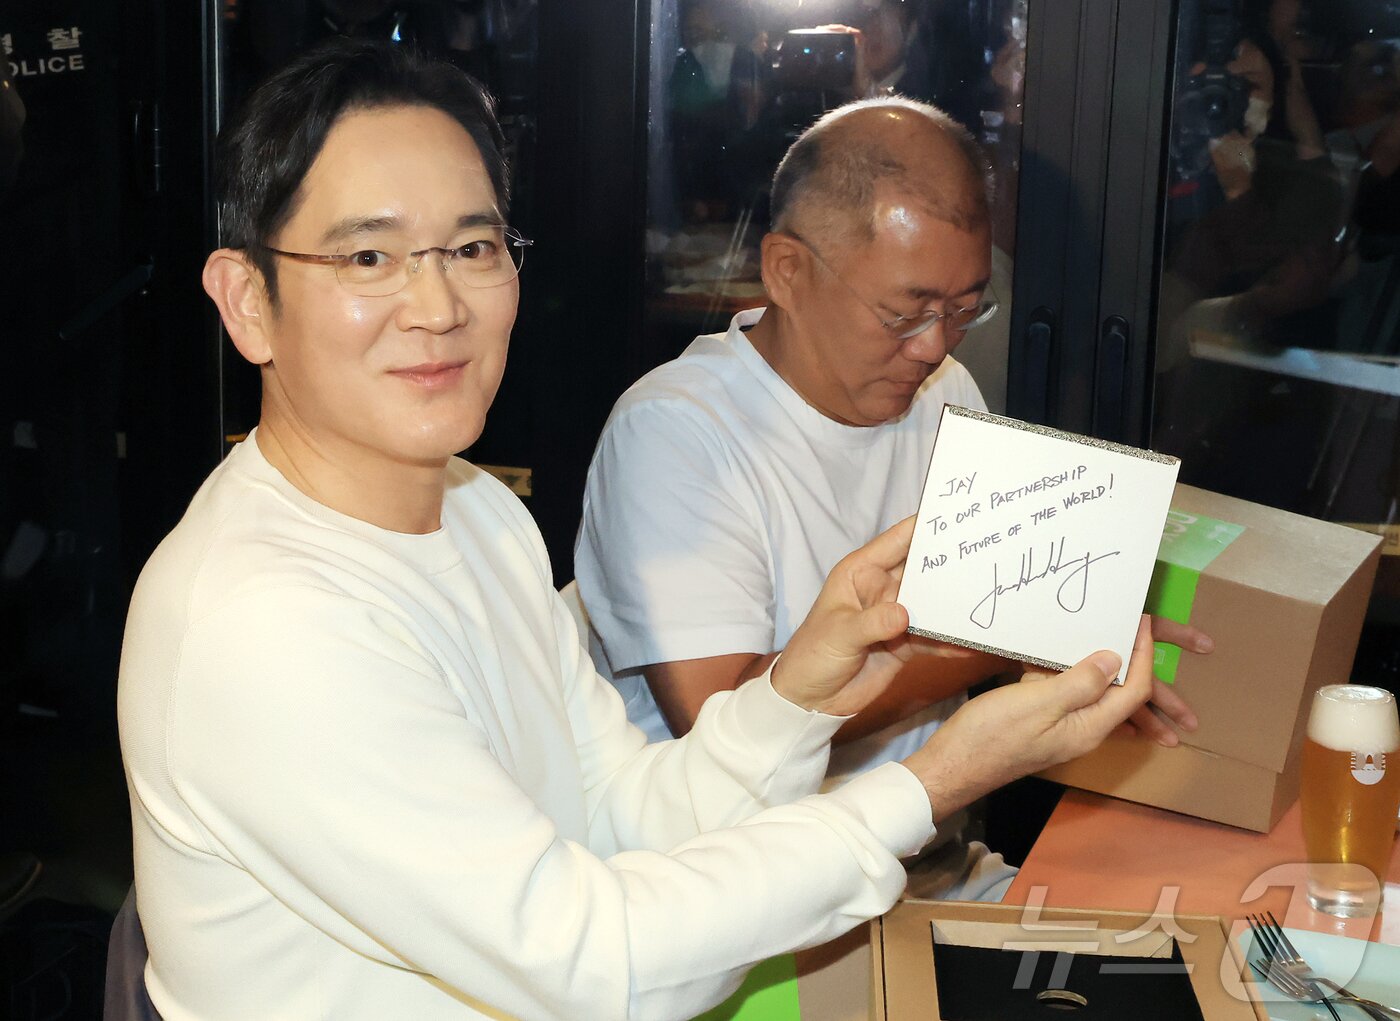 찰
POLICE
JAY
TO OUR PARTNERSHIP
AND FUTURE OF THE WORLD!
뉴스1